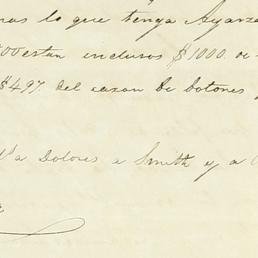 mas lo que tenga Ayarza
estan inclusos $1000. de
$497. del cazon de botones
a Dolores a Smith y a